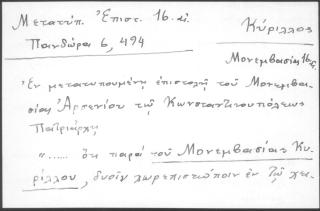 Μετατύπ. Ἐπιστ. 16. αἰ.
Πανδώρα 6, 494
Κύριλλος
Μονεμβασίας 16 αἰ.
Ἐν μετατυπουμένῃ ἐπιστολῇ τοῦ Μονεμβα-
σίας Ἀρσενίου τῷ Κωνσταντινουπόλεως
Πατριάρχῃ
"...... ὅτι παρὰ τοῦ Μονεμβασίας Κυ-
ρίλλου, δυσὶν ἐν τῷ χει-